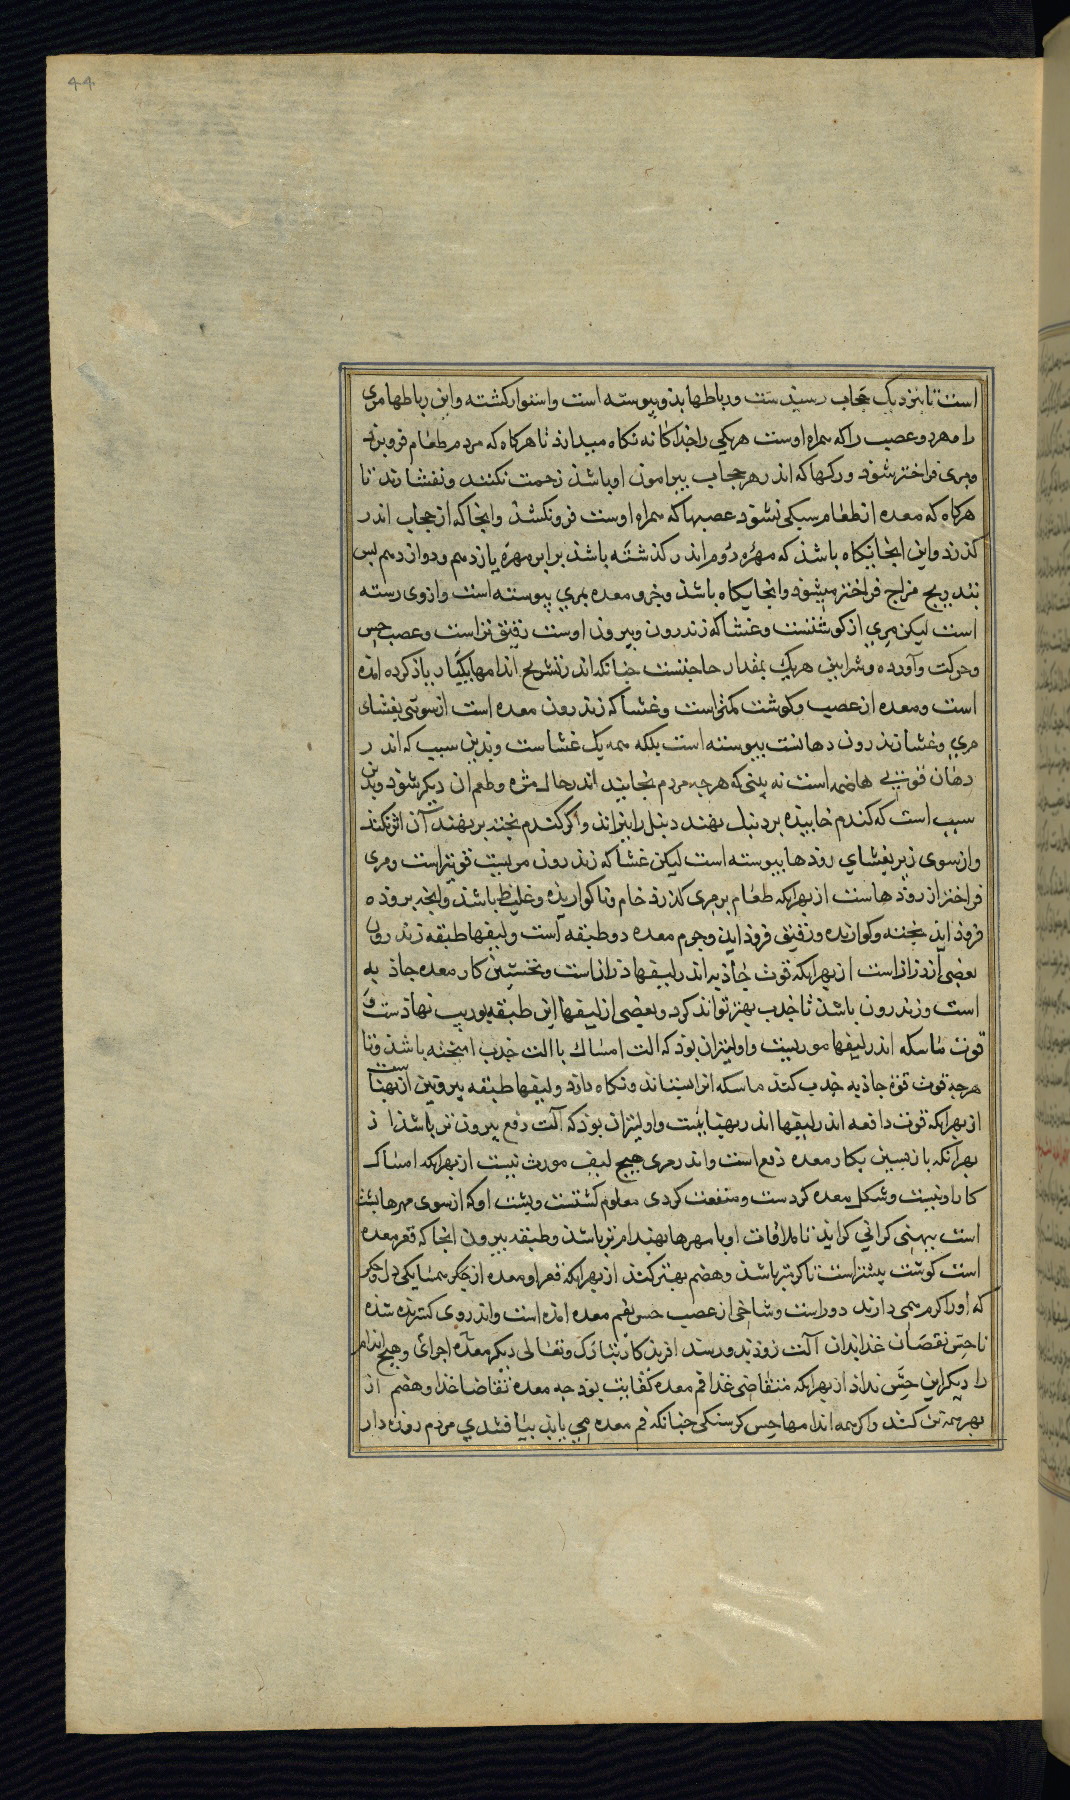 44
است تا بنزدیک حجاب رسیدست و رباطها بدو پیوسته است و استوار کشته و این رباطها مری
را و هر دو عصب را که همراه اوست هریکی را جداکانه نکاه میدارد تا هرکاه که مردم طعام فرو برد
و مری فراختر شود و رکها که اندر هر حجاب پیرامون او باشد زحمت نکنند و نفشارند تا
هرکاه که معده از طعام سبکی نشود عصبها که همراه اوست فرو نکشد و انجا که از حجاب اندر
کذرد و این انجایکاه باشد که مهره دوم اندر کذشته باشد برابر مهره یازدهم و دوازدهم پس
بتدریج مزاج فراختر میشود و انجایکاه باشد و جرم معده بمری پیوسته است و از وی رسته
است لیکن مری از کوشتست و غشا که زندرون و بیرون اوست رقیق تر است و عصب حس
و حرکت و آورده و شرایین هر یک بمقدار حاجتست چنانکه اندر تشریح اندامها یکبار یاد کرده امده
است و معده از عصب و کوشت کمتر است و غشا که زندرون معده است از سوی بغشای
مری و غشا زندرون دهانست پیوسته است بلکه همه یک غشاست و بدین سبب که اندر
دهان قوتی هاضمه است نه بینی که هرچه مردم بخایند اندر حال مزه و طعم ان دیکر شود و بدین
سبب است که کندم خاییده بر دنبل نهند دنبل را بپزاند و اکر کندم پخته بر نهند آن اثر نکند
و از سوی زیر بغشای رودها پیوسته است لیکن غشا که زندرون مریست قویتر است و مری
فراختر از رودهاست از بهر انکه طعام بر مری کذرد خام و ناکواریده و غلیظ باشد و انچه بروده
فرود اید پخته و کوارنده و رقیق فرود اید و جرم معده دو طبقه است و لیفها طبقه زندرون
بعضی اندر از است از بهر انکه قوت جاذبه اندر لیفها دراز است و نخستین کار معده جاذبه
است و زندرون باشد تا جذب بهتر تواند کرد و بعضی از لیفها این طبقه بوریب نهادست و
قوت ماسکه اندر لیفها موربست و اولیتر ان بود که الت امساک با الت جذب امیخته باشد و تا
هرچه قوت قوة جاذبه جذب کند ماسکه انرا بستاند و نکاه دارد و لیفها طبقه بیرونین از پهناست
از بهر انکه قوت دافعه اندر لیفها اندر پهنا بست و اولیتر ان بود که الت دفع بیرون تر باشد از
بهر انکه باز پسین بکار معده دفع است و اندر مری هیچ لیف مورب نیست از بهر انکه امساک
کار او نیست و شکل معده کردست و منفعت کردی معلوم کشتست و پشت او که از سوی مهرها پشت
است بپهنی کرانی کراید تا ملاقات او با مهرها بهندام تر باشد و طبقه بیرون انجا که قعر معده
است کوشت بیشتر است تا کرم تر باشد و هضم بهتر کند از بهر انکه قعر او معده از جکر همسایکی دل و جکر
که او را کرم همی دارند دور است و شاخی از عصب حس بفم معده امده است و اندر وی کسترده شده
تا حس نقصان غذا بدان آلت زود بدو رسد افریدکار تبارک و تعالی دیکر معده اجزای و هیچ اندام
را دیکر این حس نداد از بهر انکه متقاضی غذا فم معده کفایت بود چه معده تقاضا غذا و هضم از
بهر همه تن کند و اکر همه اندامها حس کرسنکی چنانکه فم معده می یابد بیافتندی مردم روزه دار